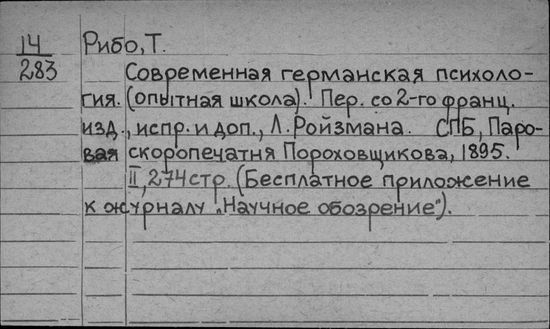 14 Рибо, Т.
283 Современная германская психоло-
гия. (опытная школа). Пер. со 2-го франц.
изд., испр. и доп., Л. Ройзмана. СПБ, Паро
вая скоропечатня Пороховщикова, 1895.
II, 274 стр. (Бесплатное приложение
к журналу „Научное обозрение").